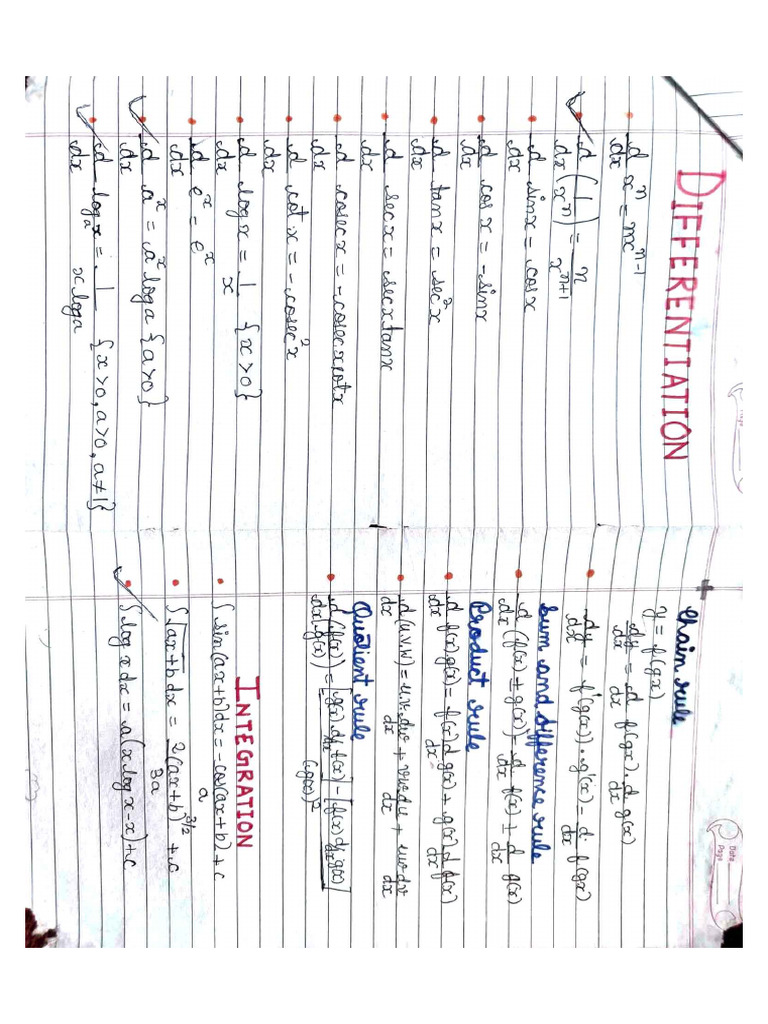 DIFFERENTIATION
d/dx xⁿ = nxⁿ⁻¹
d/dx (1/xⁿ) = n/xⁿ⁺¹
d/dx sinx = cosx
d/dx cosx = -sinx
d/dx tanx = sec²x
d/dx secx = secxtanx
d/dx cosecx = -cosecxcotx
d/dx cotx = -cosec²x
d/dx logx = 1/x {x>0}
d/dx eˣ = eˣ
d/dx aˣ = aˣloga {a>0}
d/dx logₐx = 1/xloga {x>0, a>0, a≠1}
Date
Page
Chain rule
y = f(gx)
dy/dx = d/dx f(gx). d/dx g(x)
dy/dx = f'(g(x)).g'(x) = d/dx f(gx)
Sum and difference rule
d/dx (f(x) ± g(x)) = d/dx f(x) ± d/dx g(x)
Product rule
d/dx f(x)g(x) = f(x) d/dx g(x) + g(x) d/dx f(x)
d/dx (u.v.w) = u.v. dw/dx + vw du/dx + uw dv/dx
Quotient rule
d/dx (f(x)/g(x)) = [g(x). d/dx f(x)] - [f(x) d/dx g(x)] / (g(x))²
INTEGRATION
∫sin(ax+b)dx = -cos(ax+b)/a + c
∫√ax+b dx = 2(ax+b)^3/2 / 3a + c
∫logxdx = a(xlogx-x)+c